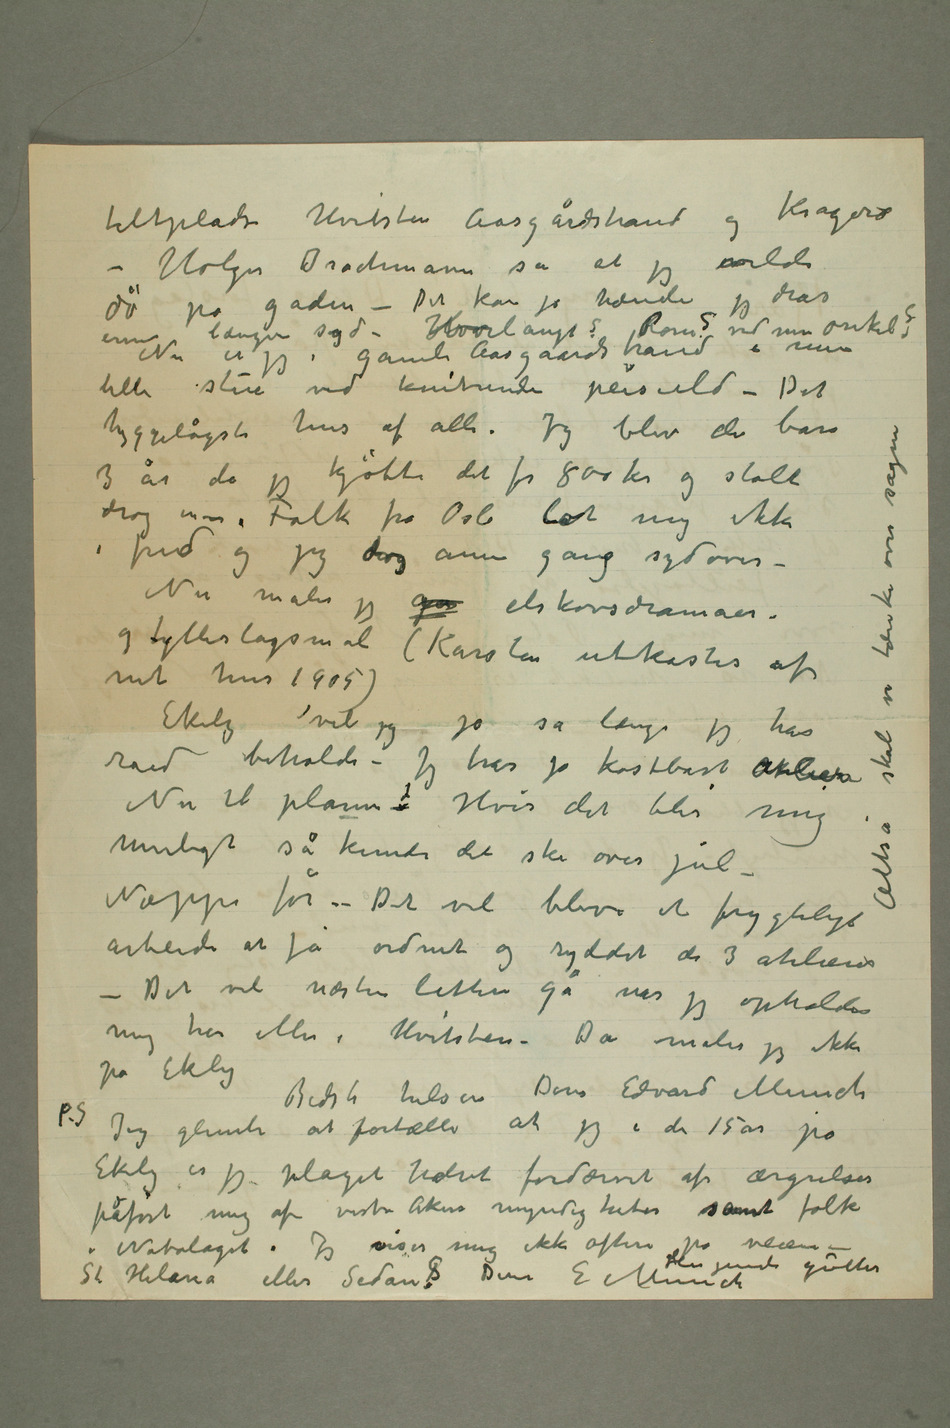 teltpladse Hvitsten Aasgårdstrand og Kragerø
– Holger Drachmann sa at jeg vilde
dö på gaden – Det kan jo hænde jeg drar
ennu længer syd – Hvorlangt? Rom? ved min onkel?
Nu er jeg i gamle Aasgaardstrand i min
lille stue ved knitrende peisild – Det
hyggeligste hus af alle. Jeg blev der bare
3 år da jeg kjöbte det for 800 kr og stolt
drog ind. Folk fra Oslo lot mig ikke
i fred og jeg drog annen gang sydover –
Nu maler jeg elskovsdramaer.
og fylleslagsmål (Karsten utkastes af
mit hus 1905)
Ekely vil jeg jo så længe jeg har
råd beholde – Jeg har jo kostbart Atelier
Nu til planen: Hvis det blir mig
muligt så kunde det ske over jul –
Næppe för – Det vil blive et frygteligt
arbeide at få ordnet og ryddet de 3 atelierer
– Det vil næsten lettere gå når jeg opholder
mig her eller i Hvitsten – Da maler jeg ikke
på Ekely
Bedste hilsen Deres Edvard Munch
P.S Jeg glemte at fortælle at jeg i de 15 år på
Ekely er jeg plaget halvt fordærvet af ærgrelser
påfört mig af vestre Akers myndigheter samt folk
i Nabolaget. Jeg viser mig ikke oftere på veien –
St Helena eller Sedan? Deres E Munch
gutter
Altså skal vi tænke over sagen